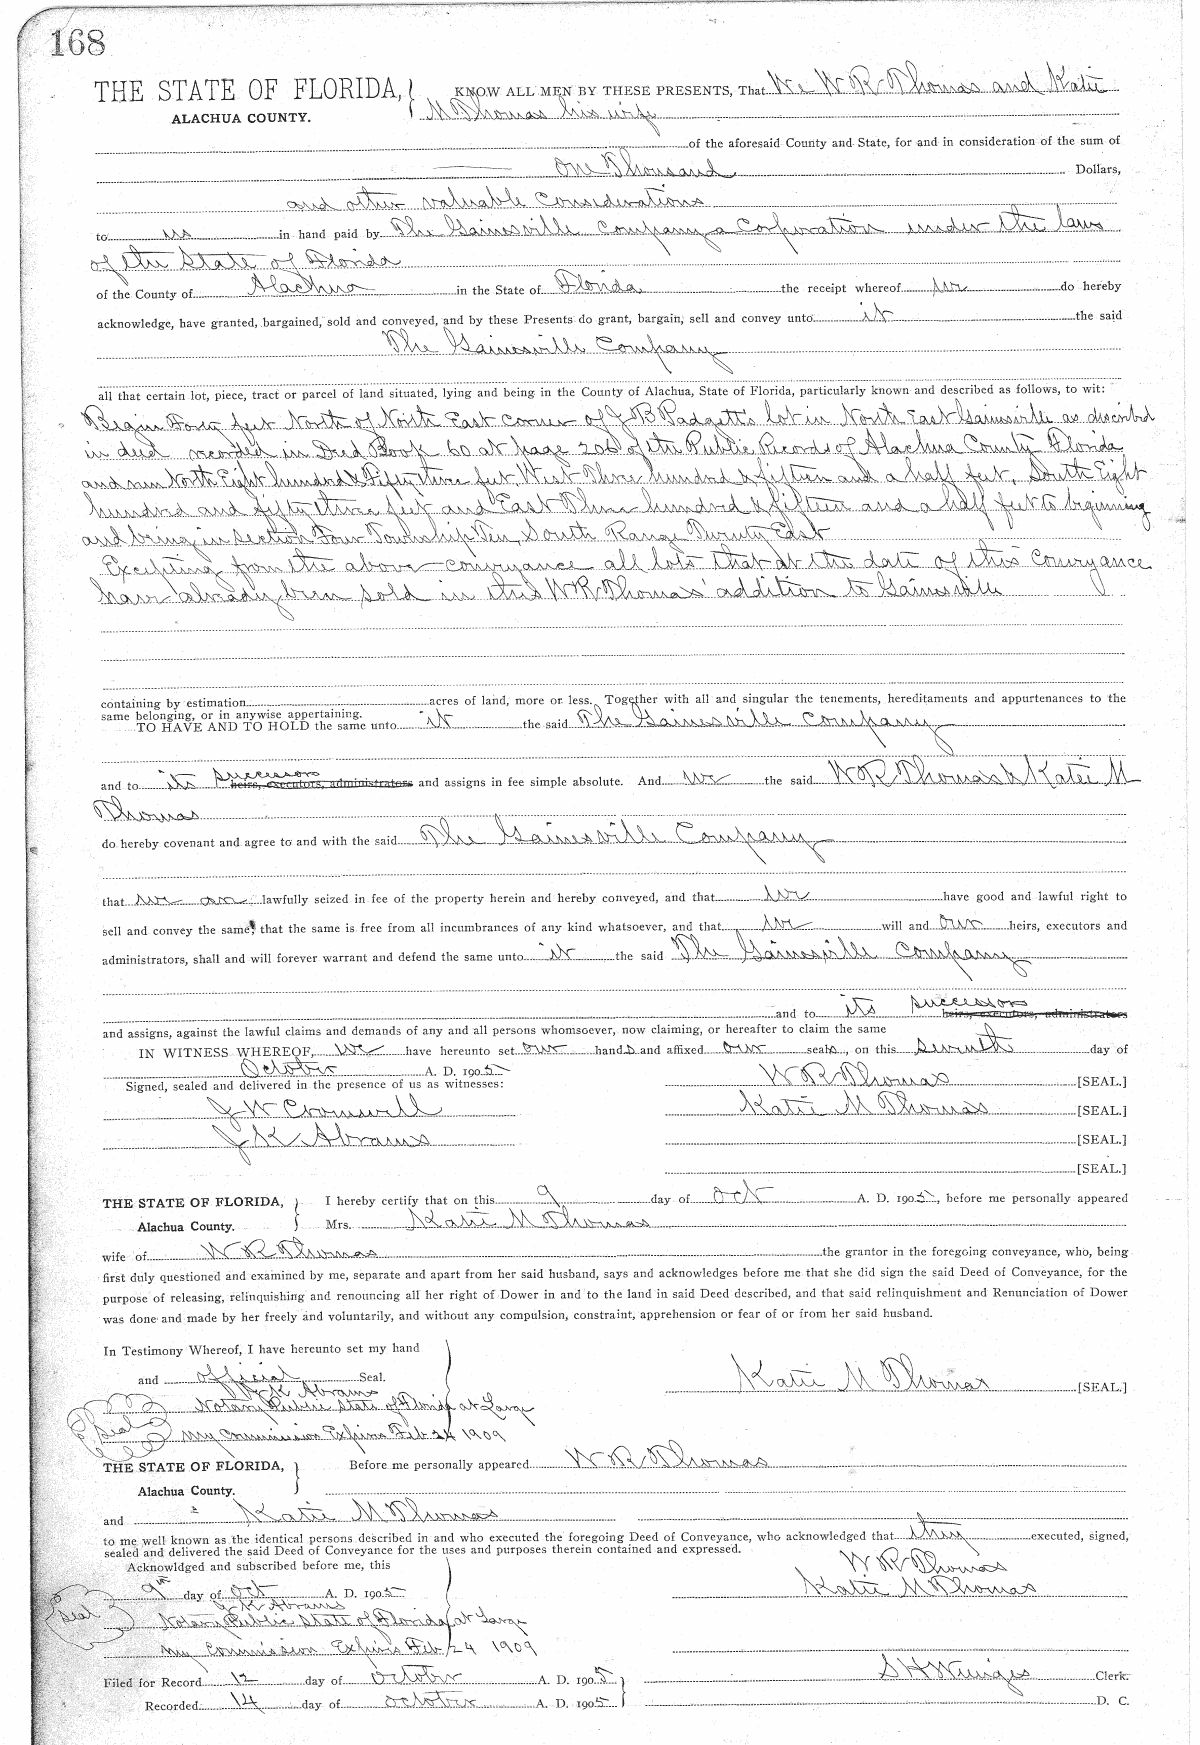 168
THE STATE OF FLORIDA, KNOW ALL MEN BY THESE PRESENTS, That We W R Thomas and Katie
ALACHUA COUNTY. M Thomas his wife
of the aforesaid County and State, for and in consideration of the sum of
One Thousand Dollars,
and other valuable Considerations
to us in hand paid by The Gainesville Company a Corporation under the laws
of the State of Florida
of the County of Alachua in the State of Florida the receipt whereof we do hereby
acknowledge, have granted, bargained, sold and conveyed, and by these Presents do grant, bargain, sell and convey unto it the said
The Gainesville Company
all that certain lot, piece, tract or parcel of land situated, lying and being in the County of Alachua, State of Florida, particularly known and described as follows, to wit:
Begin Forty feet North of North East corner of J B Padgett's lot in North East Gainesville as described
in deed recorded in Deed Book 60 at page 206 of the Public Records of Alachua County Florida
and run North Eight hundred & Fifty three feet, West Three hundred & fifteen and a half feet, South Eight
hundred and fifty three feet and East Three hundred & fifteen and a half feet to beginning
and being in section Four Township Ten, South Range Twenty East
Excepting from the above conveyance all lots that at the date of this conveyance
have already been sold in this W R Thomas' addition to Gainesville
containing by estimation acres of land, more or less. Together with all and singular the tenements, hereditaments and appurtenances to the
same belonging, or in anywise appertaining.
TO HAVE AND TO HOLD the same unto it the said The Gainesville Company
and to its successors heirs, executors, administrators and assigns in fee simple absolute. And we the said W R Thomas & Katie M
Thomas
do hereby covenant and agree to and with the said The Gainesville Company
that we are lawfully seized in fee of the property herein and hereby conveyed, and that we have good and lawful right to
sell and convey the same; that the same is free from all incumbrances of any kind whatsoever, and that we will and our heirs, executors and
administrators, shall and will forever warrant and defend the same unto it the said The Gainesville Company
and to its successors heirs, executors, administrators
and assigns, against the lawful claims and demands of any and all persons whomsoever, now claiming, or hereafter to claim the same
IN WITNESS WHEREOF, we have hereunto set our hands and affixed our seals, on this seventh day of
October A. D. 1905
Signed, sealed and delivered in the presence of us as witnesses: W R Thomas [SEAL.]
J W Cromwell Katie M Thomas [SEAL.]
J K Abrams [SEAL.]
[SEAL.]
THE STATE OF FLORIDA, I hereby certify that on this 9 day of Oct A. D. 1905, before me personally appeared
Alachua County. Mrs. Katie M Thomas
wife of W R Thomas the grantor in the foregoing conveyance, who, being
first duly questioned and examined by me, separate and apart from her said husband, says and acknowledges before me that she did sign the said Deed of Conveyance, for the
purpose of releasing, relinquishing and renouncing all her right of Dower in and to the land in said Deed described, and that said relinquishment and Renunciation of Dower
was done and made by her freely and voluntarily, and without any compulsion, constraint, apprehension or fear of or from her said husband.
In Testimony Whereof, I have hereunto set my hand
and official Seal. Katie M Thomas [SEAL.]
J K Abrams
Notary Public State of Florida at Large
Seal My Commission Expires Feb 24 1909
THE STATE OF FLORIDA, Before me personally appeared W R Thomas
Alachua County.
and Katie M Thomas
to me well known as the identical persons described in and who executed the foregoing Deed of Conveyance, who acknowledged that they executed, signed,
sealed and delivered the said Deed of Conveyance for the uses and purposes therein contained and expressed.
Acknowldged and subscribed before me, this W R Thomas
9th day of Oct A. D. 1905 Katie M Thomas
J K Abrams
Seal Notary Public State of Florida at Large
My Commission Expires Feb 24 1909
Filed for Record 12 day of October A. D. 1905 S H Wienges Clerk.
Recorded 14 day of October A. D. 1905 D. C.